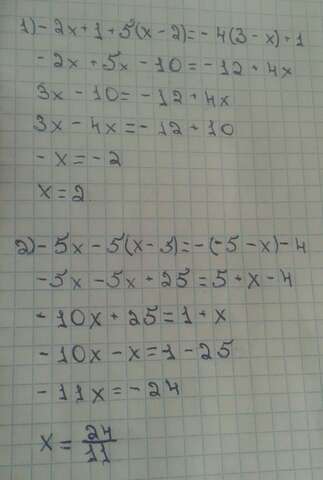 1) - 2x + 1 + 5(x - 2) = - 4(3 - x) + 1
- 2x + 5x - 10 = - 12 + 4x
3x - 10 = - 12 + 4x
3x - 4x = - 12 + 10
- x = - 2
x = 2
2) - 5x - 5(x - 5) = - (- 5 - x) - 4
- 5x - 5x + 25 = 5 + x - 4
- 10x + 25 = 1 + x
- 10x - x = 1 - 25
- 11x = - 24
x = 24/11